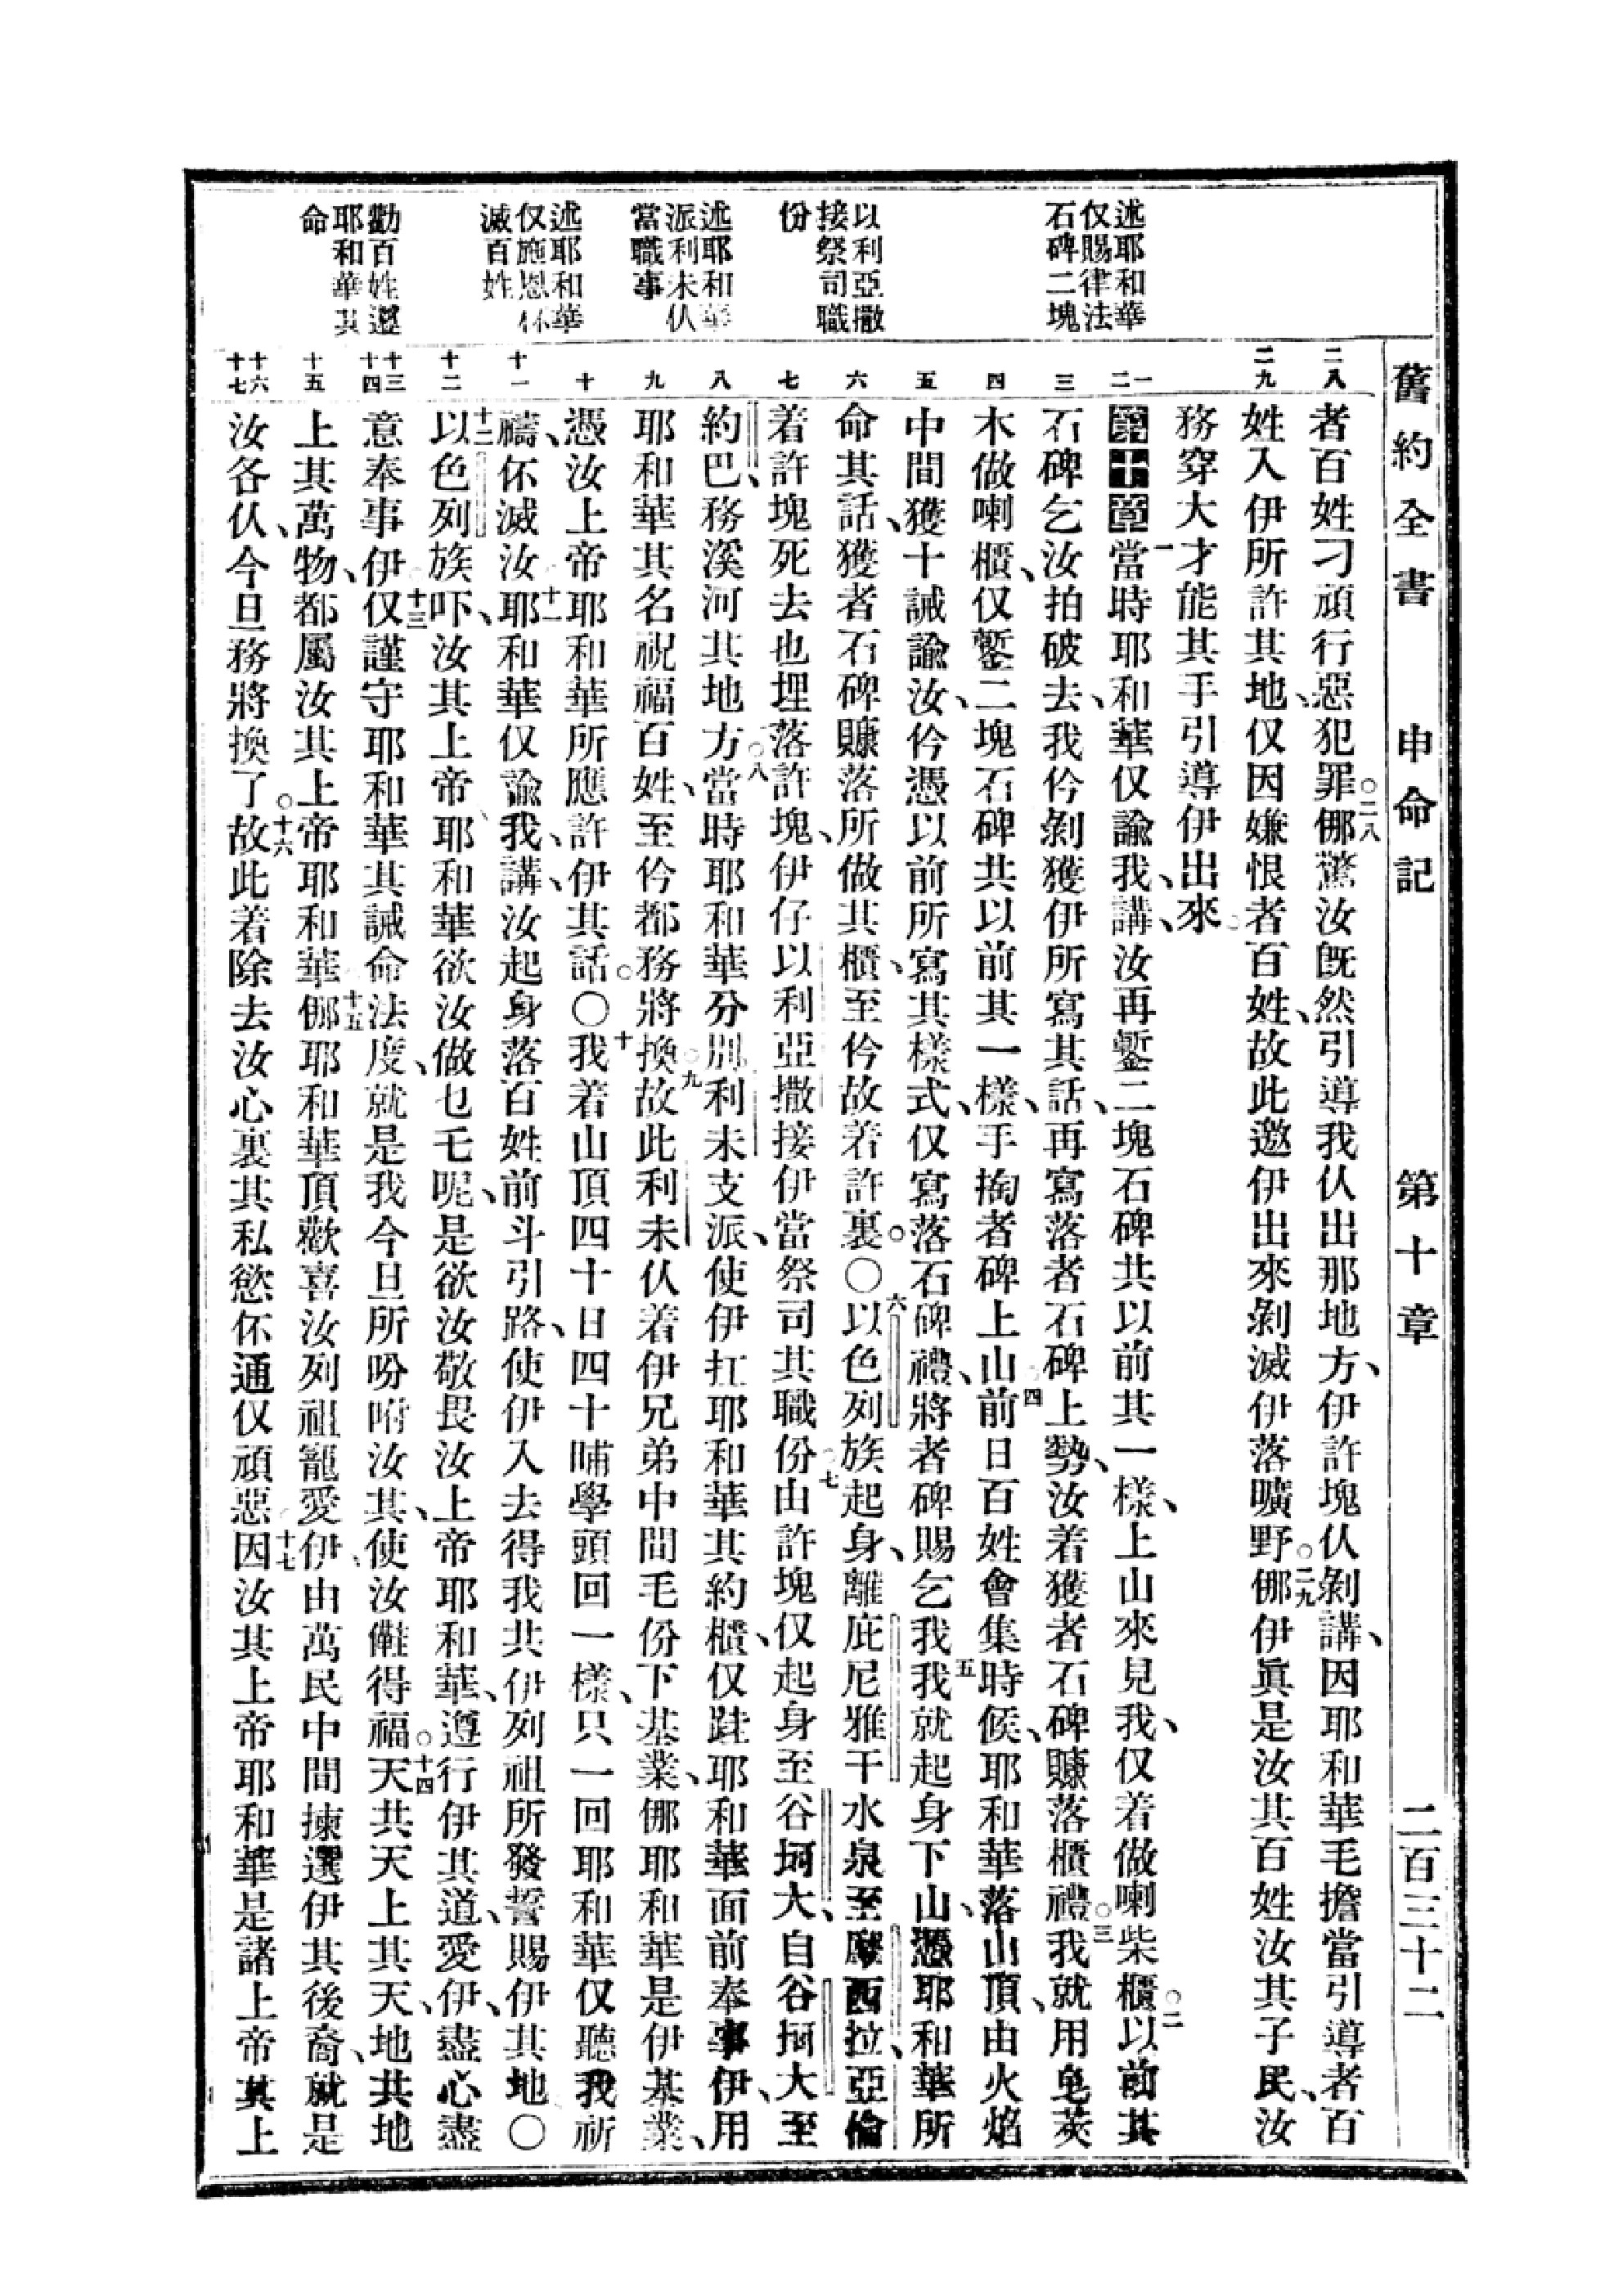 舊約全書 申命記 第十章 二百三十二
述耶和華
仅賜律法
石碑二塊
以利亞撒
接祭司職
份
述耶和華
派利未仈
當職事
述耶和華
仅施恩伓
滅百姓
勸百姓遵
耶和華其
命
二八
者百姓刁頑行惡犯罪○二八㑚驚汝旣然引導我仈出那地方、伊許塊仈剝講、因耶和華毛擔當引導者百
二九
姓入伊所許其地、仅因嫌恨者百姓、故此邀伊出來剝滅伊落曠野○二九㑚伊眞是汝其百姓汝其子民、汝
務穿大才能其手引導伊出來○
一
二
第十章一當時耶和華仅諭我、講、汝再鏨二塊石碑共以前其一樣、上山來見我、仅着做喇柴櫃○二以前其
三
石碑乞汝拍破去、我仱剝獲伊所寫其話、再寫落者石碑上勢、汝着獲者石碑賺落櫃禮○三我就用皂莢
四
木做喇櫃、仅鏨二塊石碑共以前其一樣、手掏者碑上山○四前日百姓會集時候、耶和華落山頂、由火焰
五
中間獲十誡諭汝、仱憑以前所寫其樣式、仅寫落石碑禮、將者碑賜乞我五我就起身下山、憑耶和華所
六
命其話、獲者石碑賺落所做其櫃、至仱故着許裏。○六以色列族起身、離庇尼雅干水泉至摩西拉、亞倫
七
着許塊死去也埋落許塊、伊仔以利亞撒接伊當祭司其職份○七由許塊仅起身至谷坷大、自谷坷大至
八
約巴、務溪河其地方○八當時耶和華分別利未支派、使伊扛耶和華其約櫃、仅跬耶和華面前奉事伊、用
九
耶和華其名祝福百姓、至仱都務將換○九故此利未仈着伊兄弟中間毛份下基業、㑚耶和華是伊基業、
十
憑汝上帝耶和華所應許伊其話。○十我着山頂四十日四十晡學頭回一樣、只一回耶和華仅聽我祈
十一
禱、伓滅汝十一耶和華仅諭我、講、汝起身落百姓前斗引路、使伊入去得我共伊列祖所發誓賜伊其地○
十二
十二以色列族吓、汝其上帝耶和華欲汝做乜乇呢、是欲汝敬畏汝上帝耶和華、遵行伊其道、愛伊、盡心盡
十三
十四
意奉事伊○十三仅謹守耶和華其誡命法度、就是我今旦所吩咐汝其、使汝儺得福○十四天共天上其天、地共地
十五
上其萬物、都屬汝其上帝耶和華○十五㑚耶和華頂歡喜汝列祖寵愛伊、由萬民中間揀選伊其後裔、就是
十六
十七
汝各仈、今旦務將換了○十六故此着除去汝心裏其私慾伓通仅頑惡○十七因汝其上帝耶和華是諸上帝其上